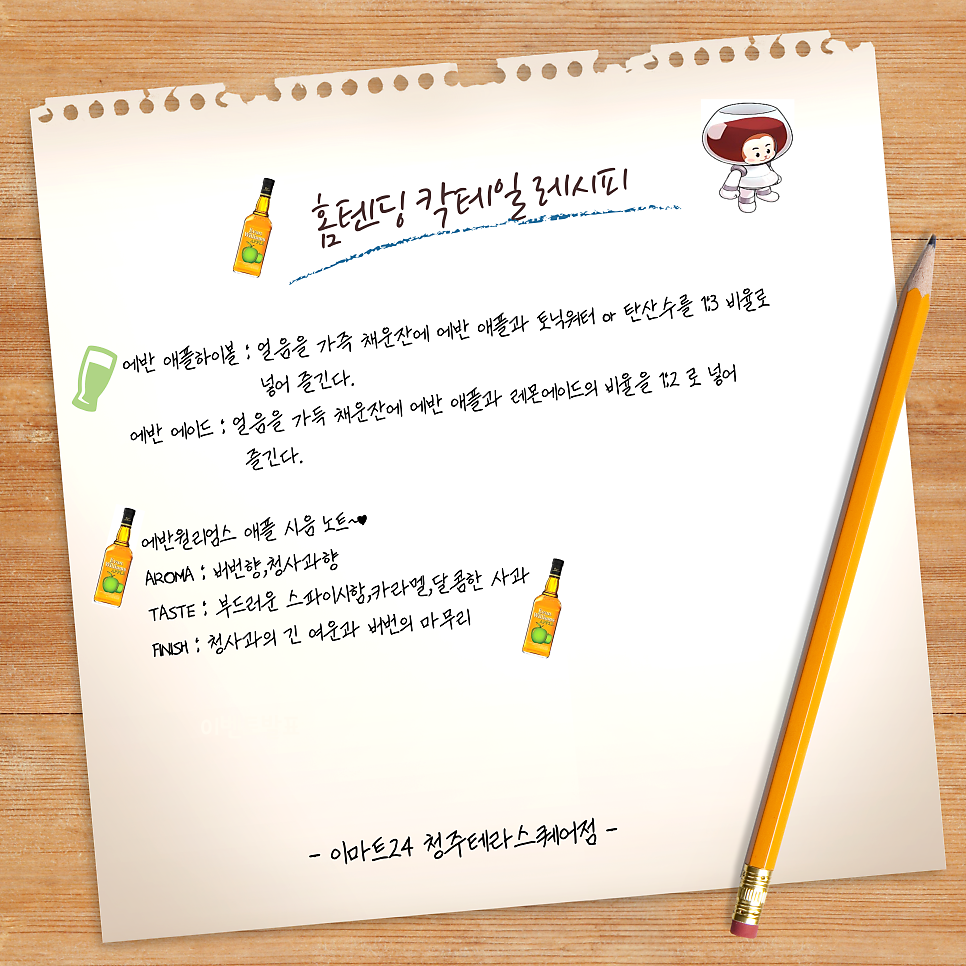 홈텐딩 칵테일 레시피
에반 애플하이볼 : 얼음을 가즉 채운잔에 에반 애플과 토닉워터 or 탄산수를 1:3 비율로
넣어 즐긴다.
에반 에이드 : 얼음을 가득 채운잔에 에반 애플과 레몬에이드의 비율을 1:2 로 넣어
즐긴다.
에반윌리엄스 애플 시음 노트~♥
AROMA : 버번향,청사과향
TASTE : 부드러운 스파이시함,카라멜,달콤한 사과
FINISH : 청사과의 긴 여운과 버번의 마무리
- 이마트24 청주테라스퀘어점 -